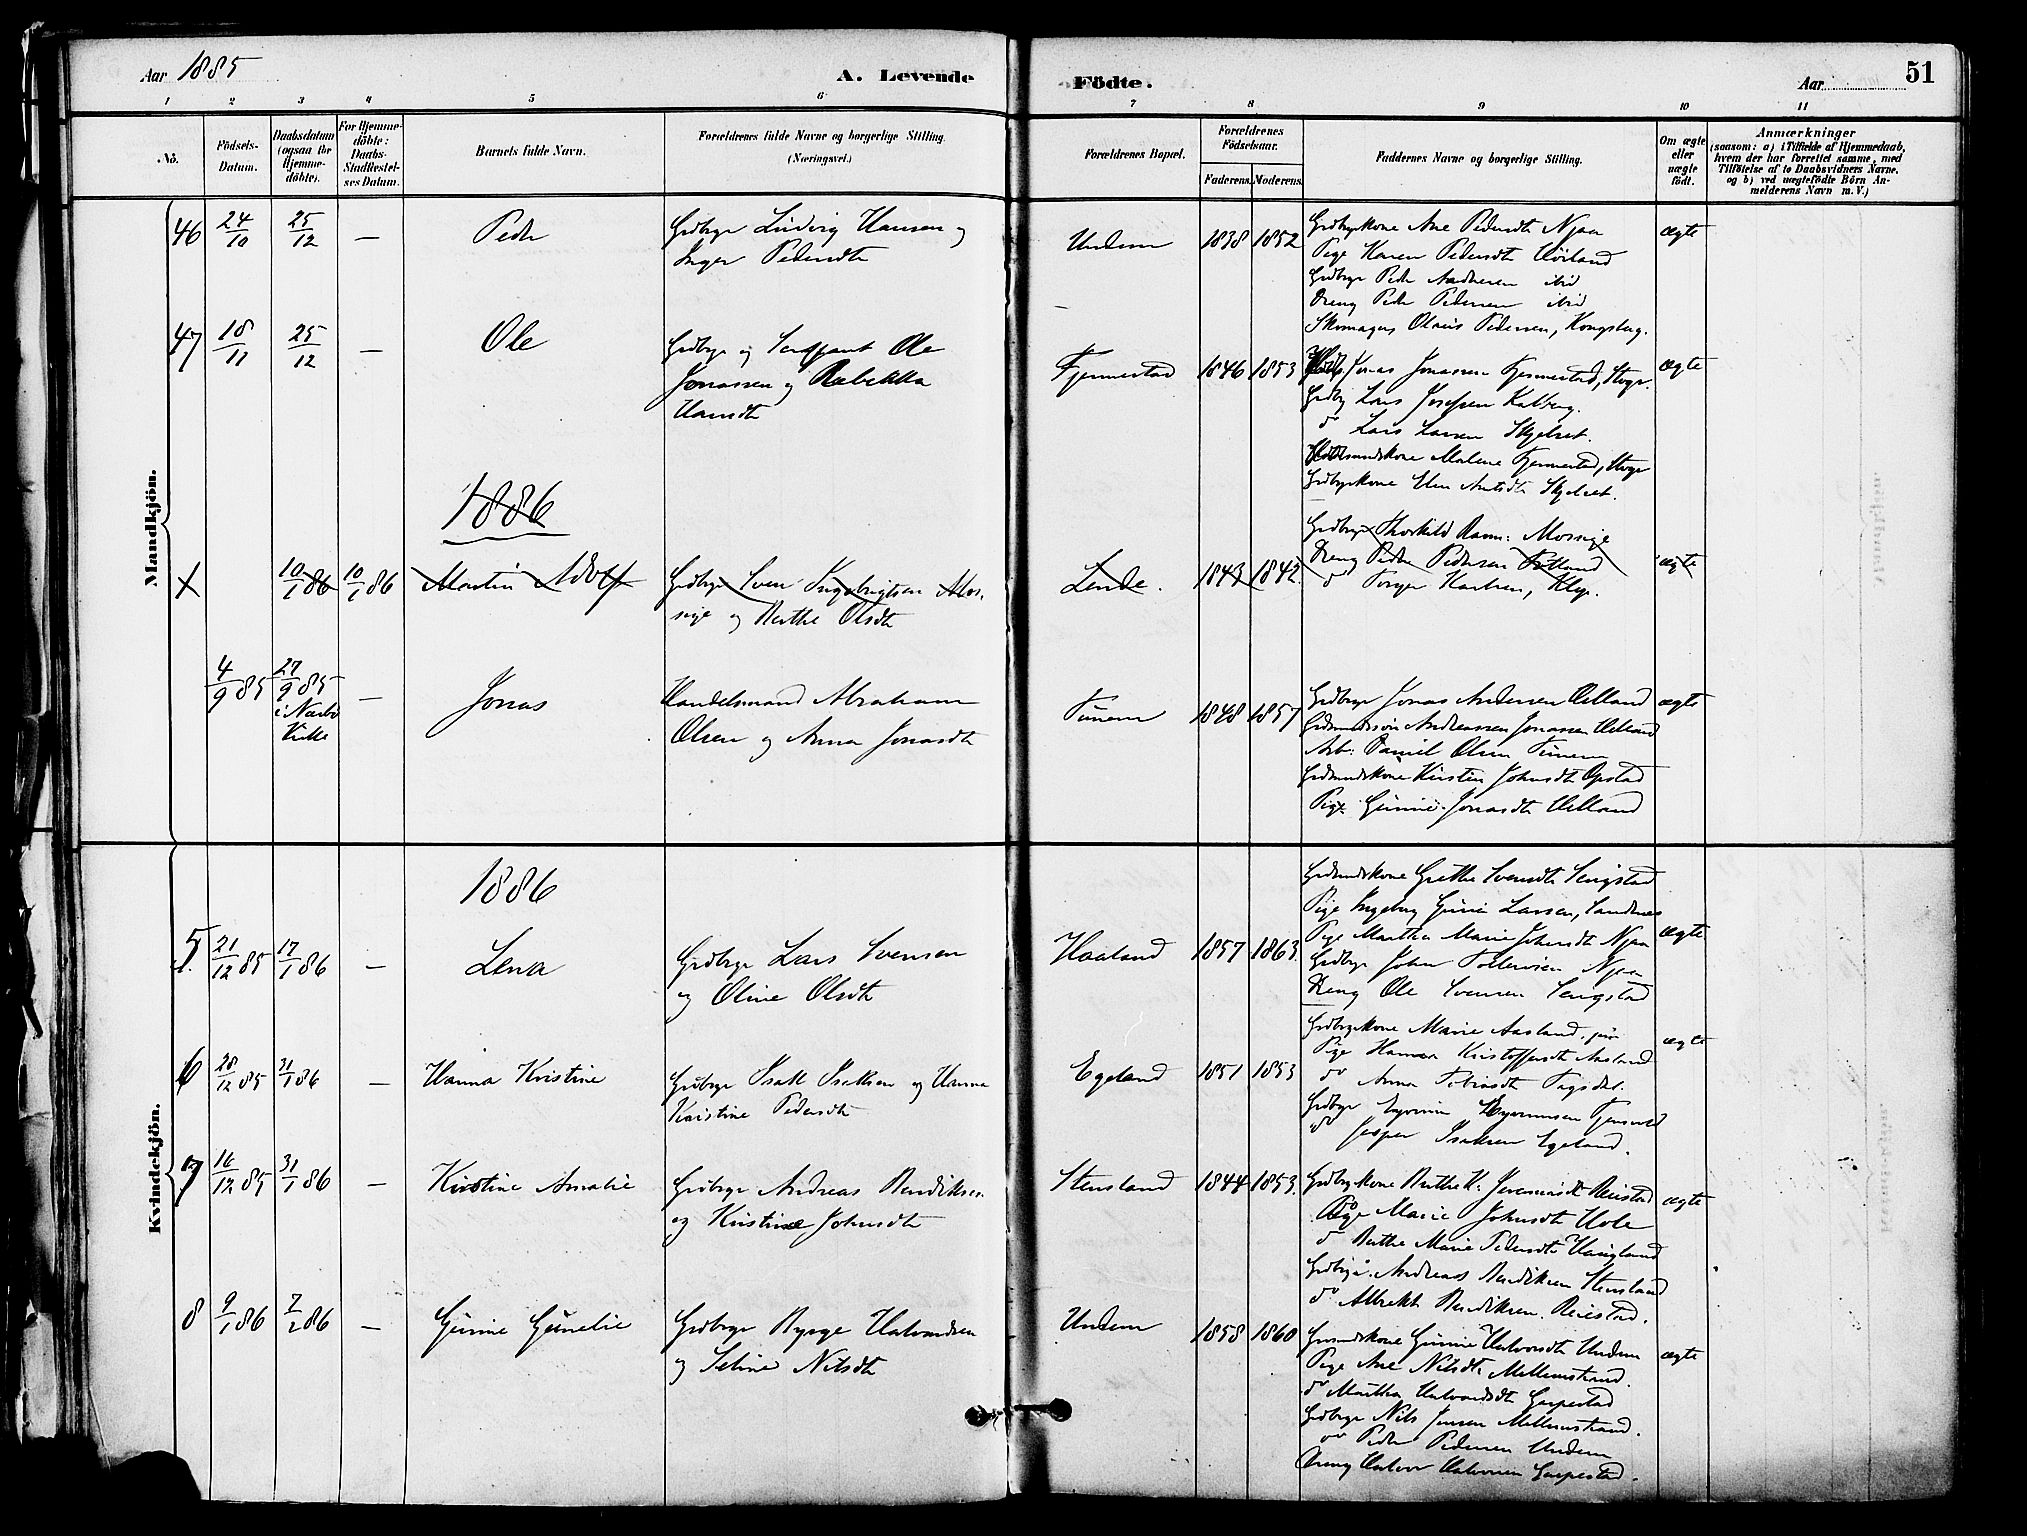 Aar 1885
A. Levende
Födte.
Aar
51
1 2 3 4 5 6 7 8 9 10 11
No.
Födsels-Datum.
Daabsdatum (ogsaa for Hjemme-döbte).
For Hjemme-döbte: Daabs-Stadfæstel-ses Datum.
Barnets fulde Navn.
Forældrenes fulde Navne og borgerlige Stilling.
(Næringsvei.)
Forældrenes Bopæl.
Forældrenes Födselsaar.
Faderens. Moderens.
Faddernes Navne og borgerlige Stilling.
Om ægte eller uægte födt.
Anmærkninger
(saasom: a) i Tilfælde af Hjemmedaab,
hvem der har forrettet samme, med
Tilföielse af to Daabsvidners Navne.
og b) ved uægtefödte Börn An-
melderens Navn m. V.)
Mandkjön.
46 24/10 25/12 — Peder
Grdbrgr Ludvig Hansen og
Inger Pedersdtr
Undem 1838 1852
Grdbrgrkone Ane Pedersdtr Njaa
Pige Karen Pedersdtr Höiland
Grdbrgr Peder ibid
Dreng Peder Pedersen ibid
Skomager Olaus Pedersen, Kongsberg.
ægte
47 18/11 25/12 — Ole
Grdbrgr og Sergeant Ole
Jonassen og Rebekka
Hansdtr
Fjermestad 1846 1853
Jonas Jonassen Fjermestad,
Grdbrg Lars Josefsen Kalberg.
do Lars Larsen Skjelset.
Malene Fjermestad,
Grdbrgrkone Elen Skjelset.
ægte
1886
10/1 86 10/1 86 Martin Adolf
Grdbrgr Sven Ingebrigtsen Mos-
sige og Berthe Olsdtr
Lende. 1843 1842
Grdbrgr Thorkild Rasm: Mossige
Dreng Peder Pedersen
do Torger Karlsen, Klep.
ægte
4/9 85 27/9 85 i Nærbö Kirke — Jonas
Handelsmand Abraham
Olsen og Anna Jonasdtr
Tunem 1848 1857
Grdbrgr Jonas Andersen Uelland
Grdmandssön Andreassen Jonassen Uelland
Arb: Daniel Olsen Tunem
Grdmandskone Kirsten Johnsdtr Opstad
Pige Gunnie Jonasdtr Uelland
ægte
Kvindekjön.
1886
5. 21/12 85 17/1 86 — Lena
Grdbrgr Lars Svensen
og Oline Olsdtr
Haaland 1857 1863.
Grdmandskone Grethe Svensdtr Sengstad
Pige Ingeborg Larsen, Sandnes
Pige Martha Marie Johnsdtr Njaa
Grdbrgr John Tollevsen Njaa
Dreng Ole Svensen Sengstad
ægte
6 28/12 85 31/1 86 — Hanna Kristine
Grdbrgr Isak Isaksen og Hanna
Kristine Pedersdtr
Egeland 1851 1853
Grdbrgrkone Marie Aasland.
Pige Hanna Kristoffersdtr Aasland
do Anna Tobiasdtr
Grdbrgr
do Jesper Isaksen Egeland.
ægte
7 16/12 85 31/1 86 — Kirstine Amalie
Grdbrgr Andreas Bendiksen
og Kirstine Johnsdtr
Stensland 1844 1853.
Grdbrgrkone Berthe K. Reiestad
Pige Marie Johnsdtr Hole
do Berthe Marie Pedersdtr
Grdbrgr. Andreas Bendiksen Stensland
do Albrekt Bendiksen. Reiestad.
ægte
8 9/1 86 7/2 86 — Gunne Gunelie
Grdbrgr Byrge Halvordsen
og Seline Nilsdtr
Undem 1858 1860
Grdmandskone Gunne Halvorsdtr Undem
Pige Ane Nilsdtr Mellemstrand.
do Martha Halvordsdtr
Grdbrgr Nils Jensen Mellemstrand.
do Peder Pedersen Undem
Dreng Halvor Halvorsen
ægte